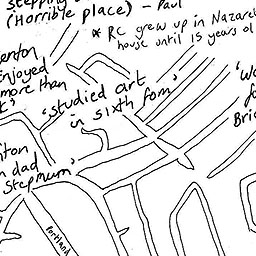 stepping
(Horrible place) - Paul
* RC grew up in Nazaret
house until 15 years ol
enton
enjoyed
more than
k'
'studied art
in sixth form'
'W
fo
Bri
nton
n dad
Stepmum'
Portland